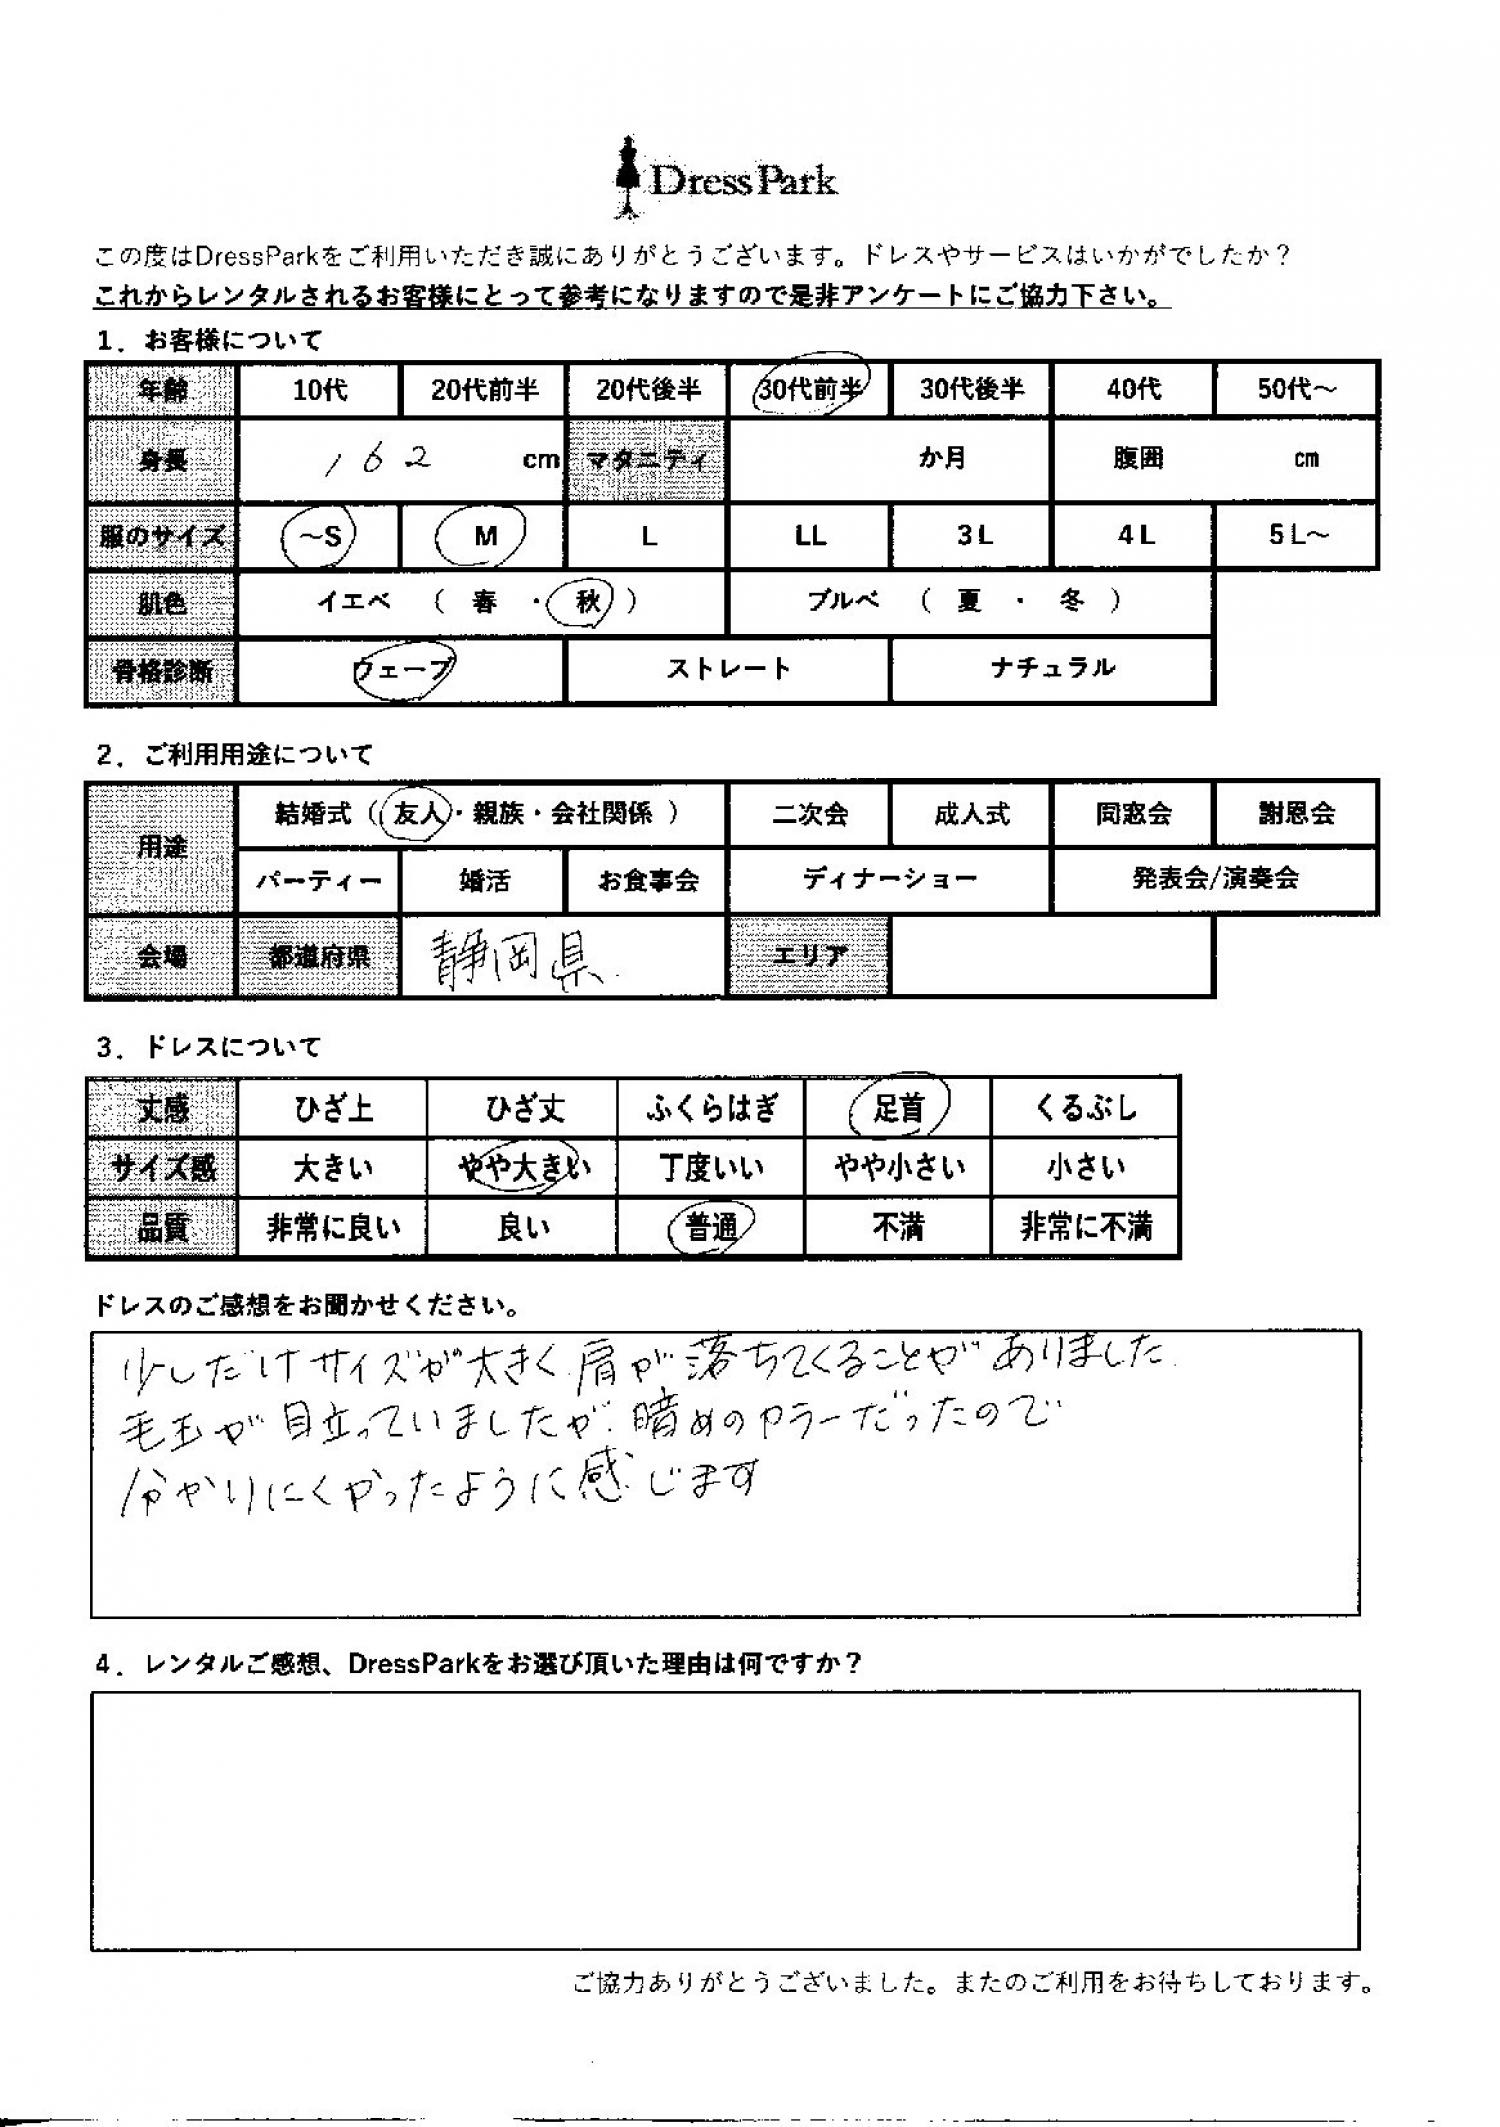 DressPark
この度はDressParkをご利用いただき誠にありがとうございます。ドレスやサービスはいかがでしたか？
これからレンタルされるお客様にとって参考になりますので是非アンケートにご協力下さい。
1．お客様について
年齢 10代 20代前半 20代後半 30代前半 30代後半 40代 50代～
身長 162 cm マタニティ か月 腹囲 cm
服のサイズ ～S M L LL 3L 4L 5L～
肌色 イエベ （ 春 ・ 秋 ） ブルベ （ 夏 ・ 冬 ）
骨格診断 ウェーブ ストレート ナチュラル
2．ご利用用途について
用途 結婚式（ 友人・親族・会社関係 ） 二次会 成人式 同窓会 謝恩会
パーティー 婚活 お食事会 ディナーショー 発表会/演奏会
会場 都道府県 静岡県 エリア
3．ドレスについて
丈感 ひざ上 ひざ丈 ふくらはぎ 足首 くるぶし
サイズ感 大きい やや大きい 丁度いい やや小さい 小さい
品質 非常に良い 良い 普通 不満 非常に不満
ドレスのご感想をお聞かせください。
少しだけサイズが大きく肩が落ちてくることがありました
毛玉が目立っていましたが、暗めのカラーだったので
分かりにくかったように感じます
4．レンタルご感想、DressParkをお選び頂いた理由は何ですか？
ご協力ありがとうございました。またのご利用をお待ちしております。